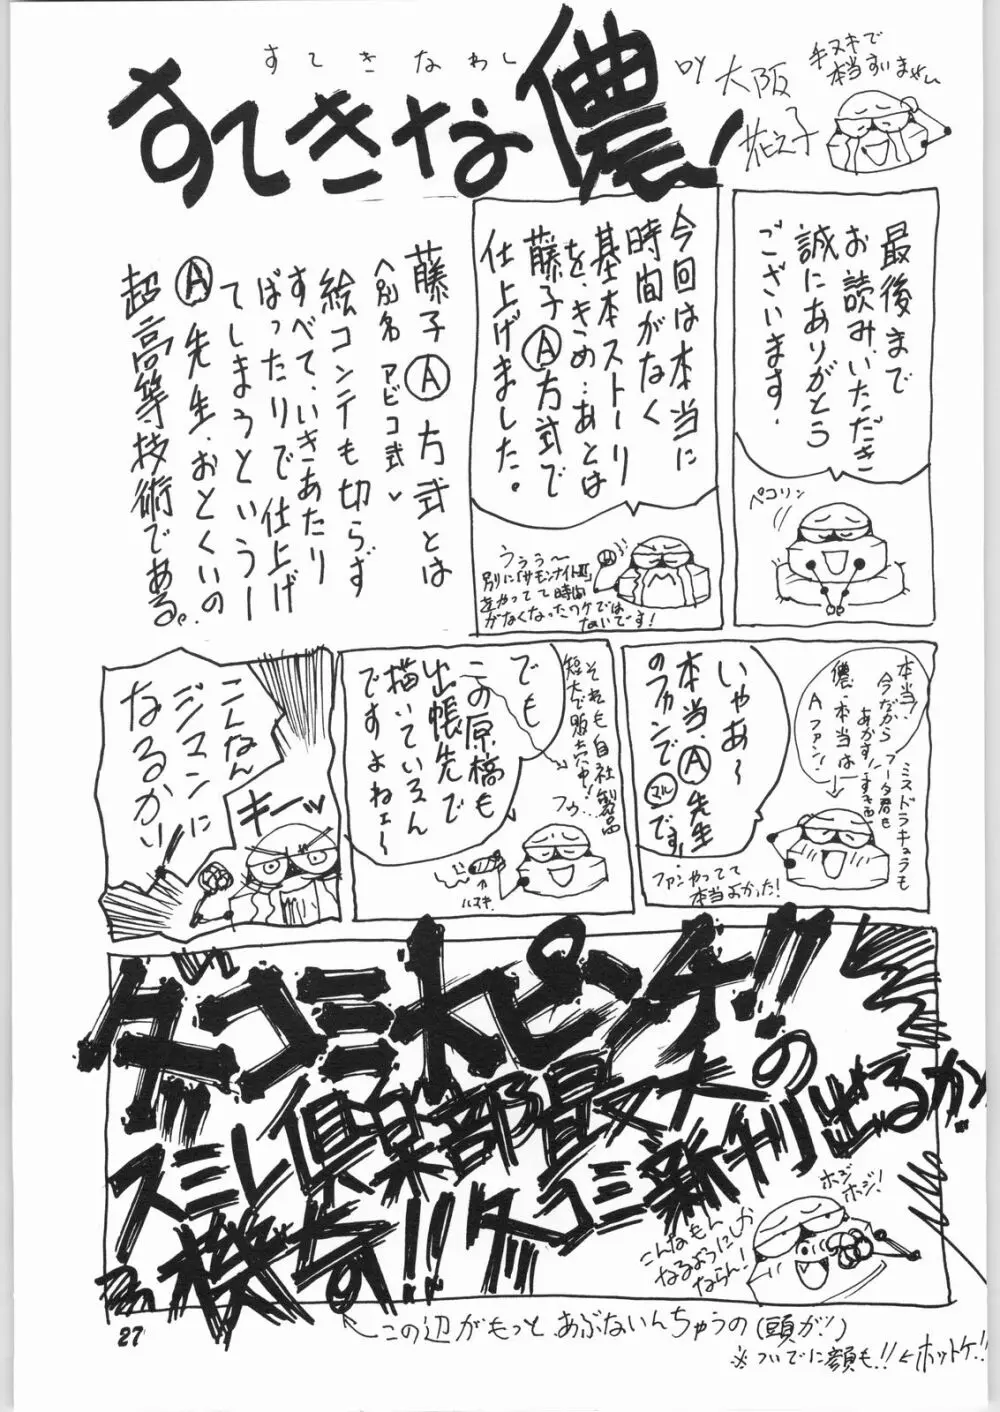 すてきなわし
すてきな儂!
by 大阪
花之子
手ヌキで
本当すいません
最後まで
お読みいただき
誠にありがとう
ございます。
ペコリン
今回は本当に
時間がなく
基本ストーリー
を、きめ…あとは
藤子Ⓐ方式で
仕上げました。
うぅぅ〜
別に「サモンナイトⅢ」
をやってて時間
がなくなったワケでは
ないです!
藤子Ⓐ方式とは
(別名 アビコ式)
絵コンテも切らず
すべて、いきあたり
ばったりで仕上げ
てしまうというー
Ⓐ先生、おとくいの
超高等技術である。
本当、ミスドラキュラも
今だから
フータ君も
あかすけど
儂、本当は
Aファン!
いやあ〜
本当、Ⓐ先生
のファンでマルです。
ファンやってて
本当よかった!
それも自社製品
短大で販売中!
フゥ…
でも
この原稿も
出張先で
描いているん
ですよねェ〜
ハヌキ
こんなん
ジマンに
なるかい
キーッ
ダーコミ大ピンチ!!
スミレ倶楽部最大の
危機!!
夏コミ新刊出るか
ホジ
ホジ!
こんなもん
なるようにしか
ならん!
この辺がもっと、あぶないんちゃうの(頭が!)
※ついでに顔も!!←ホットケ!!
27